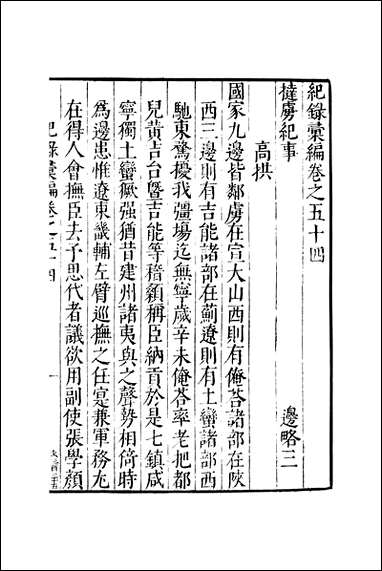 紀錄彙編卷之五十四
撻虜紀事 邊略三
高拱
國家九邊皆鄰虜在宣大山西則有俺荅諸部在陝
西三邊則有吉能諸部在薊遼則有土蠻諸部西
馳東騖擾我疆場迄無寧歲辛未俺荅率老把都
兒黃吉台暨吉能等稽顙稱臣納貢於是七鎮咸
寧獨土蠻倔强猶昔建州諸夷與之聲勢相倚時
為邊患惟遼東畿輔左臂巡撫之任寔兼軍務尤
在得人會撫臣去予思代者議欲用副使張學顏
紀錄彙編卷之五十四 一